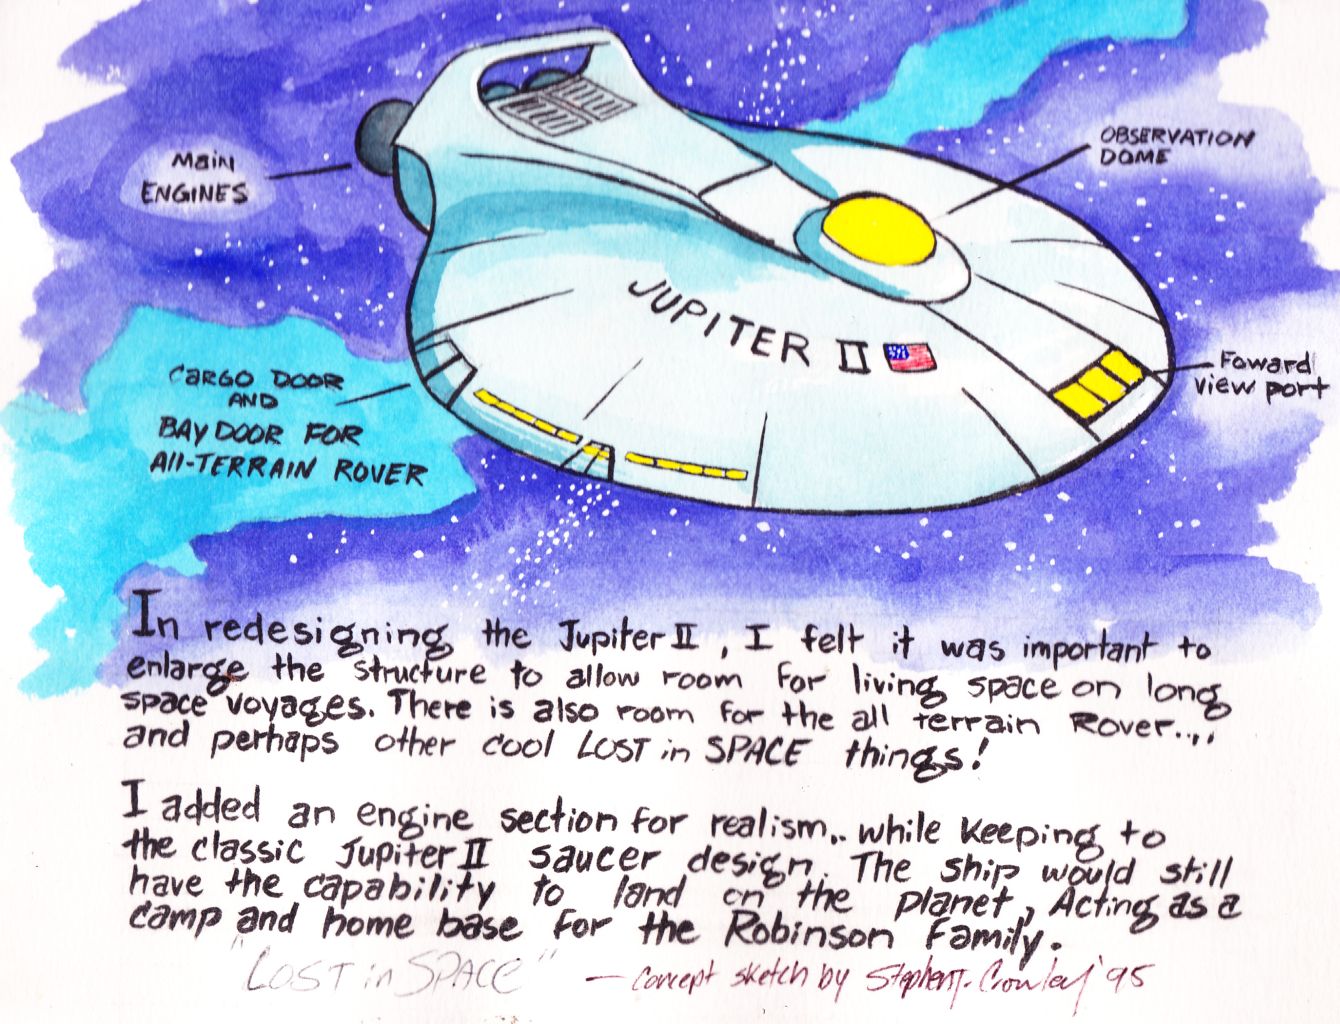 Main
ENGINES
OBSERVATION
DOME
JUPITER II
Foward
view port
CARGO DOOR
AND
BAY DOOR FOR
All-TERRAIN ROVER
In redesigning the Jupiter II, I felt it was important to
enlarge the structure to allow room for living space on long
space voyages. There is also room for the all terrain Rover....
and perhaps other cool LOST in SPACE things!
I added an engine section for realism.. while keeping to
the classic Jupiter II saucer design. The ship would still
have the capability to land on the planet, Acting as a
camp and home base for the Robinson Family.
"LOST in SPACE" — concept sketch by Stephen J. Crowley '95